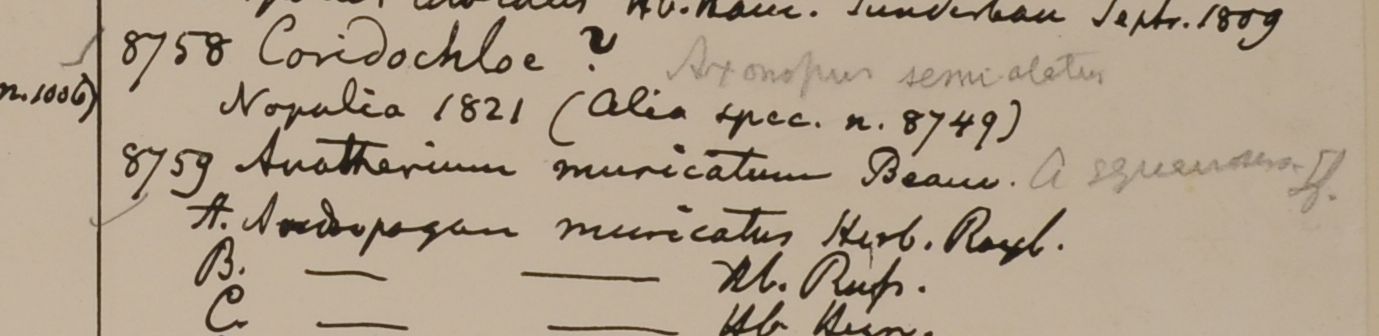 Hb. Ham. Sunderban Septr. 1809
8758 Coridochloe ? Axonopus semialatus
n. 1006)
Nopalia 1821 (Alia spec. n. 8749)
8759 Anatherium muricatum Beauv. A squarrosus Lf.
A. Andropogon muricatus Herb. Roxb.
B. — — Hb. Russ.
C. — — Hb